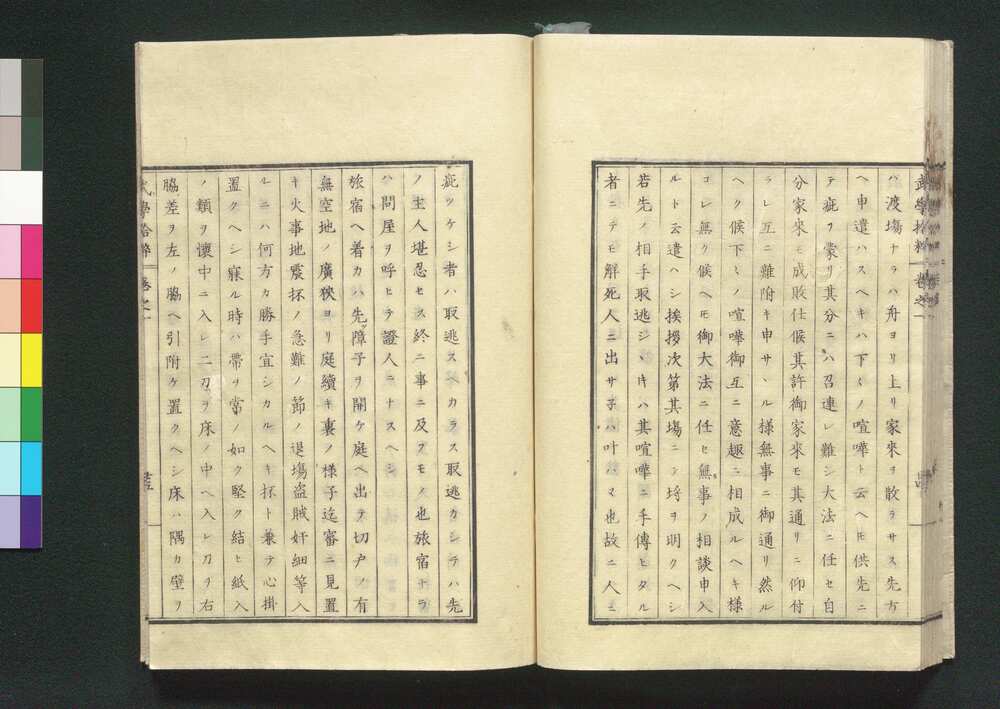 武學拾粹 卷之一
ハ渡場ナラハ舟ヨリ上リ家來ヲ散ラサス先方
ヘ申遣ハスヘキハ下〻ノ喧嘩ト云ヘ𪜈供先ニ
テ疵ヲ蒙リ其分ニハ召連レ難シ大法ニ任セ自
分家來モ成敗仕候其許御家來モ其通リニ仰付
ラレ互ニ難附キ申サヽル樣無事ニ御通リ然ル
ヘク候下〻ノ喧嘩御互ニ意趣ニ相成ルヘキ樣
コレ無ク候ヘ𪜈御大法ニ任セ無事ノ相談申入
ルト云遣ヘシ挨拶次第其場ニテ埒ヲ明クヘシ
若先ノ相手取逃シヽ𪜈ハ其喧嘩ニ手傳ヒタル
者ニテモ解死人ニ出サ子ハ叶ハマ也故ニ人ニ
疵ツケシ者ハ取逃スヘカラス取逃カシテハ先
ノ主人堪忍セス終ニ事ニ及フモノ也旅宿ナラ
ハ問屋ヲ呼ヒテ證人ニナスヘシ
旅宿ヘ着カハ先ツ障子ヲ開ケ庭ヘ出テ切戸ノ有
無空地ノ廣狹ヨリ庭續キ裏ノ樣子迄審ニ見置
キ火事地震抔ノ急難ノ節ノ退場盜賊奸細等入
ルニハ何方カ勝手宜シカルヘキ抔ト兼テ心掛
置クヘシ寐ル時ハ帶ヲ常ノ如ク堅ク結ヒ紙入
ノ類ヲ懷中ニ入レ二刀ヲ床ノ中ヘ入レ刀ヲ右
脇差ヲ左ノ脇ヘ引附ケ置クヘシ床ハ隅カ壁ヲ
武學拾粹 卷之一